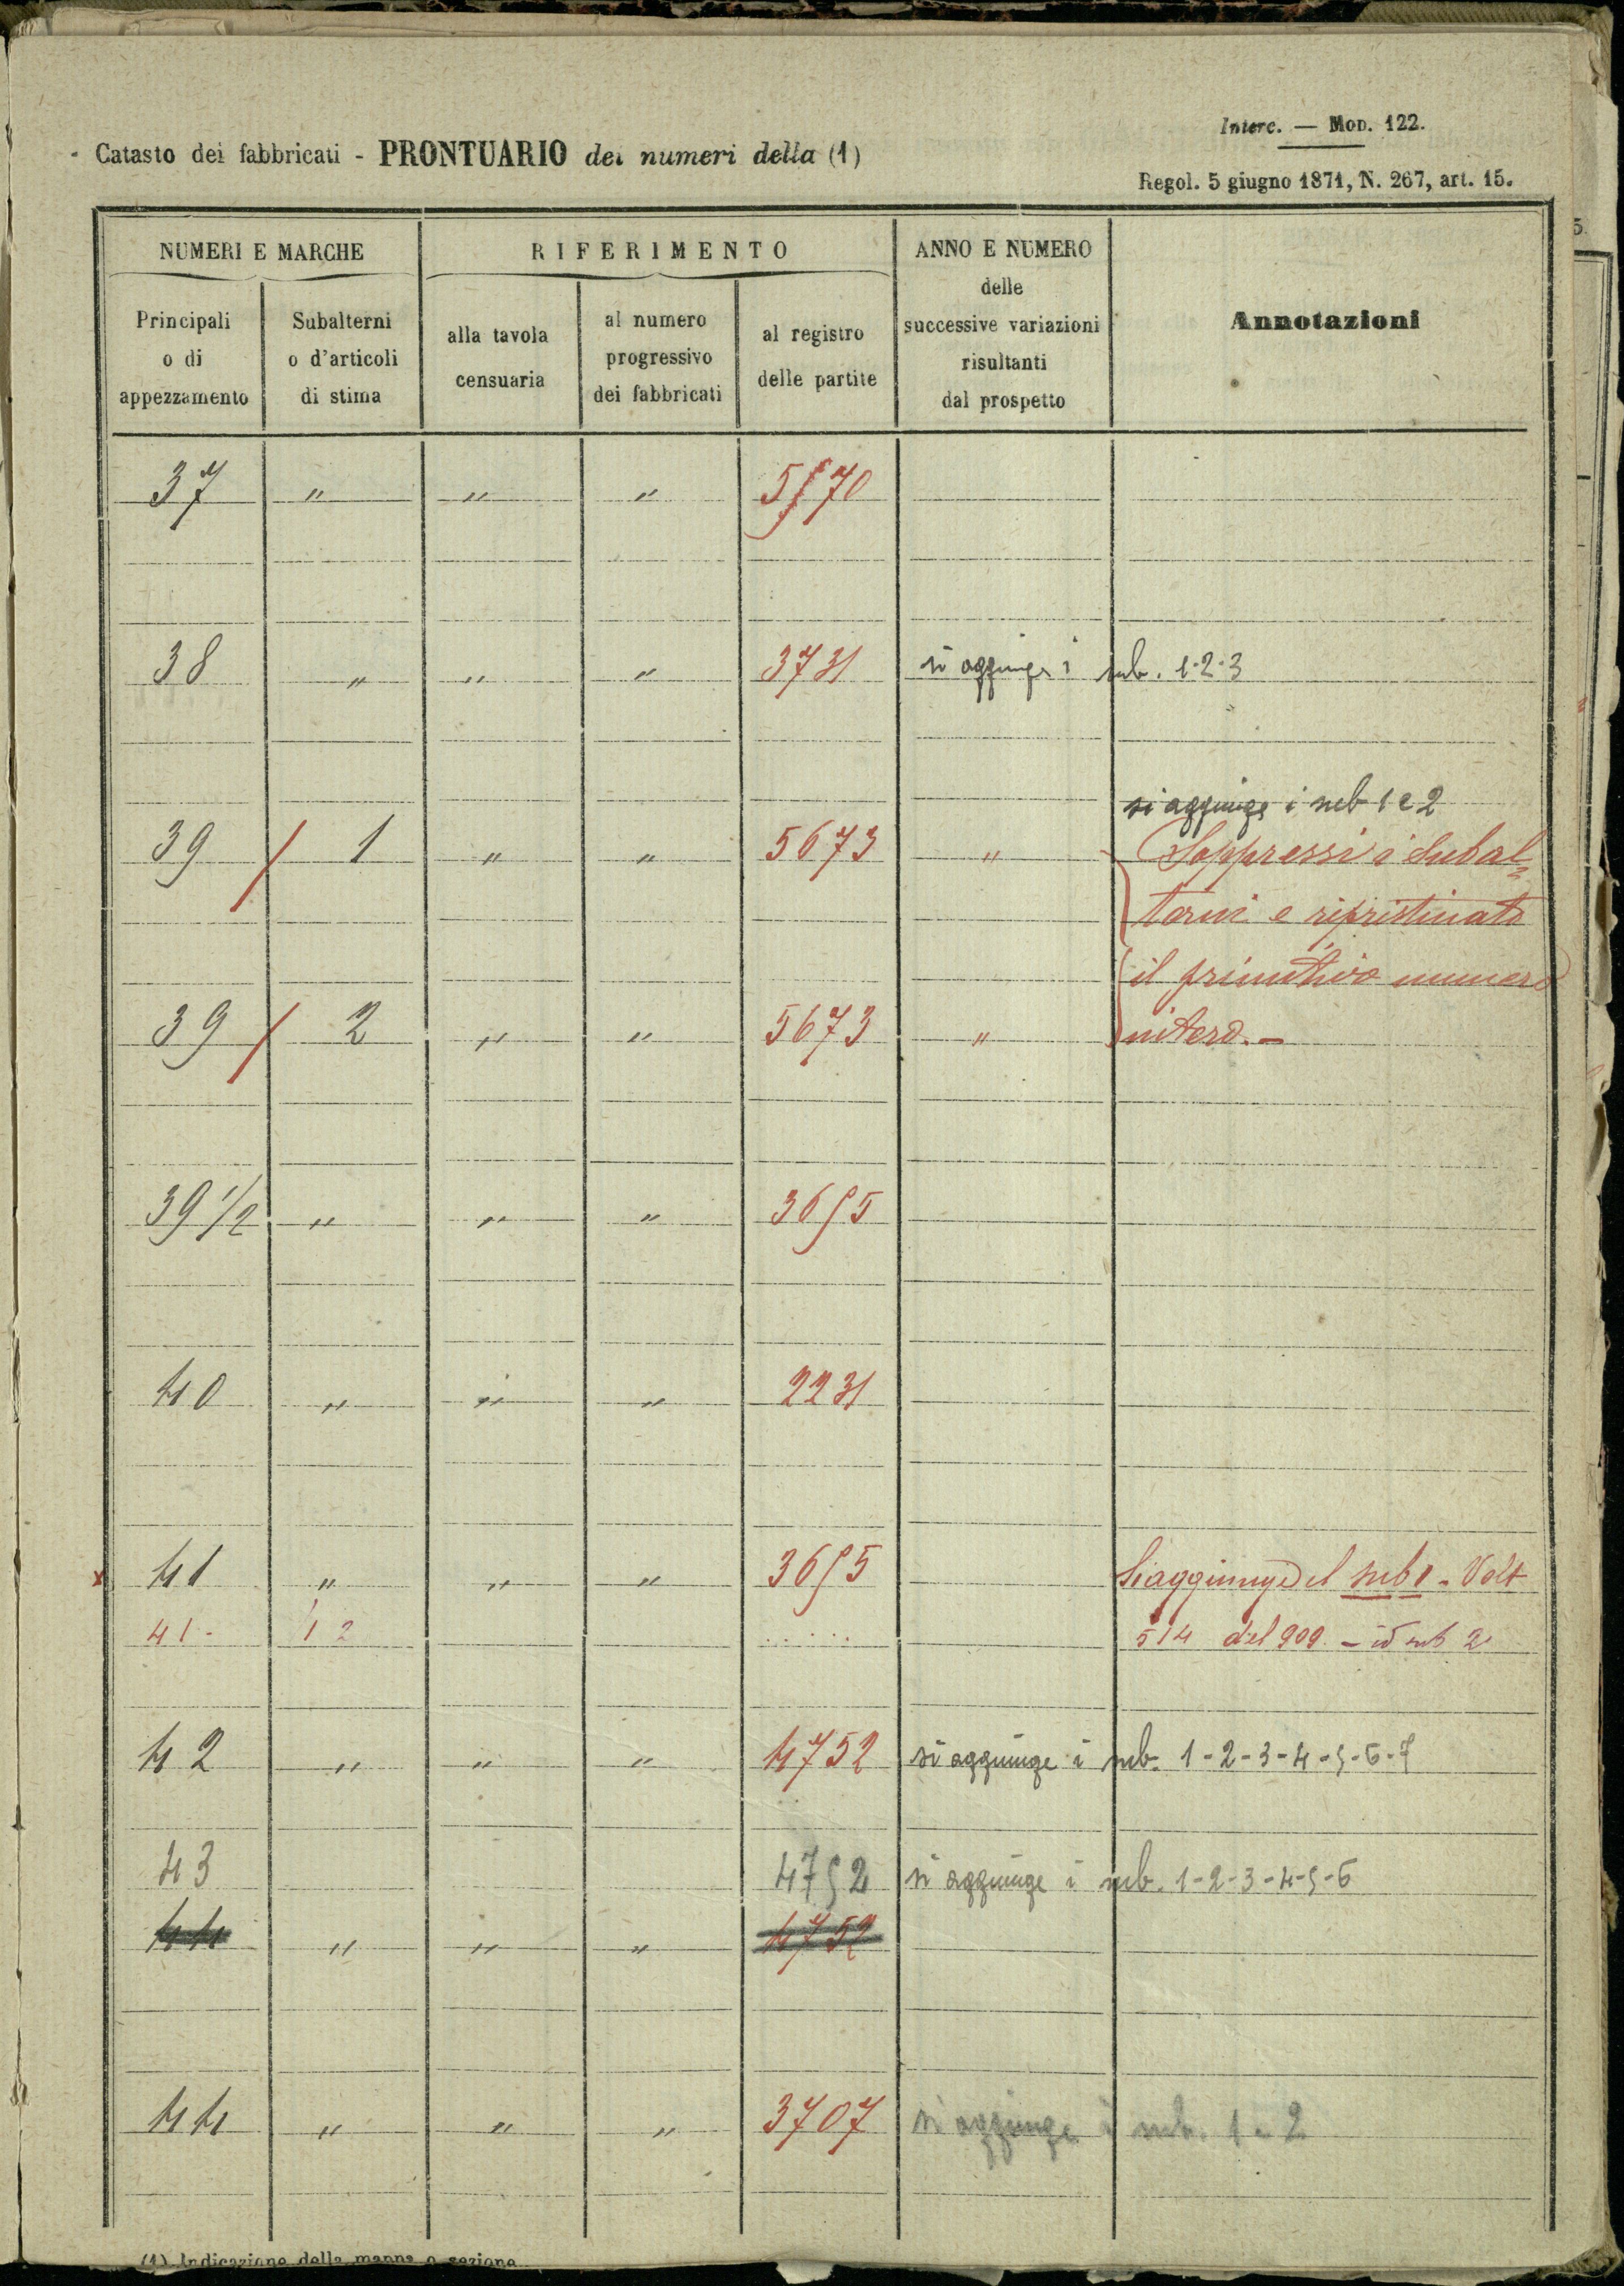 Interc. — Mod. 122.
Catasto dei fabbricati - PRONTUARIO dei numeri della (1)
Regol. 5 giugno 1871, N. 267, art. 15.
NUMERI E MARCHE
RIFERIMENTO
ANNO E NUMERO delle successive variazioni risultanti dal prospetto
Annotazioni
Principali o di appezzamento
Subalterni o d'articoli di stima
alla tavola censuaria
al numero progressivo dei fabbricati
al registro delle partite
37 " " " 5170
38 " " " 3731 si aggiunge i sub. 1-2-3
si aggiunge i sub 1 e 2
39 / 1 " " 5673 " Soppressi i Subal=
terni e ripristinato
il primitivo numero
39 / 2 " " 5673 " intero. -
39 1/2 " " " 3655
40 " " " 2231
x 41 " " " 3655 Si aggiunge il sub 1 - Volt
41 - 1 2 ..... 514 del 909 - id sub 2
42 " " " 4752 si aggiunge i sub. 1-2-3-4-5-6-7
43 4752 si aggiunge i sub. 1-2-3-4-5-6
44 " " " 4752
44 " " " 3707 si aggiunge i sub. 1 e 2
(1) Indicazione della mappa o sezione